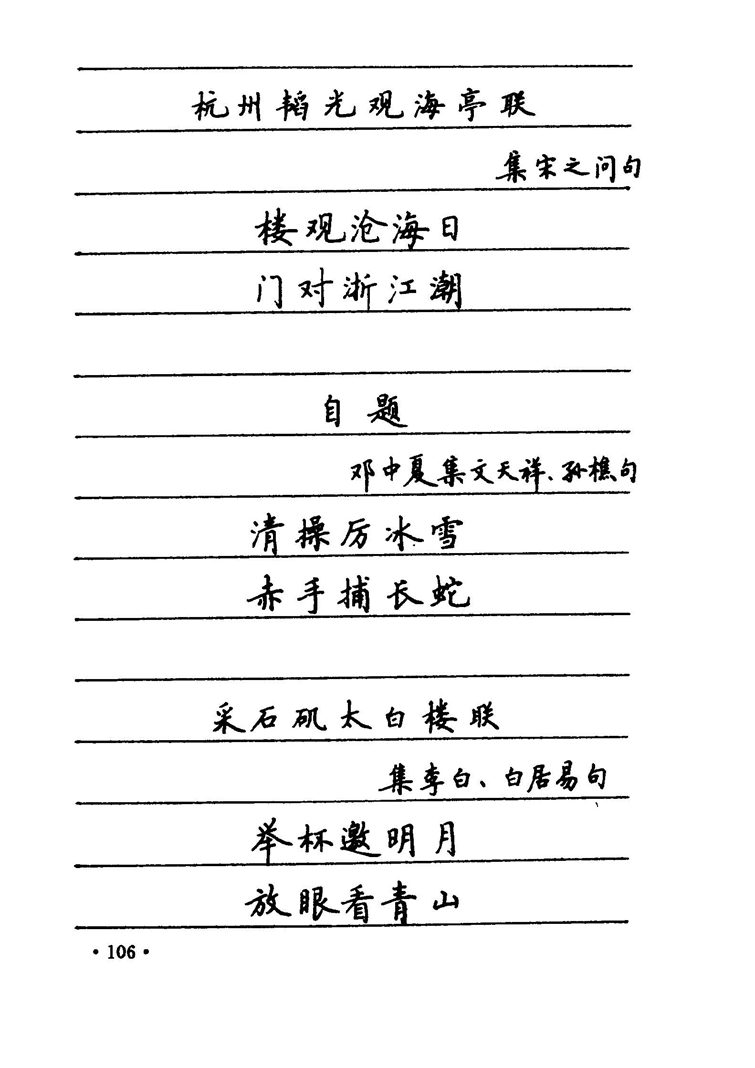 杭州韬光观海亭联
集宋之问句
楼观沧海日
门对浙江潮
自题
邓中夏集文天祥、孙樵句
清操厉冰雪
赤手捕长蛇
采石矶太白楼联
集李白、白居易句
举杯邀明月
放眼看青山
·106·